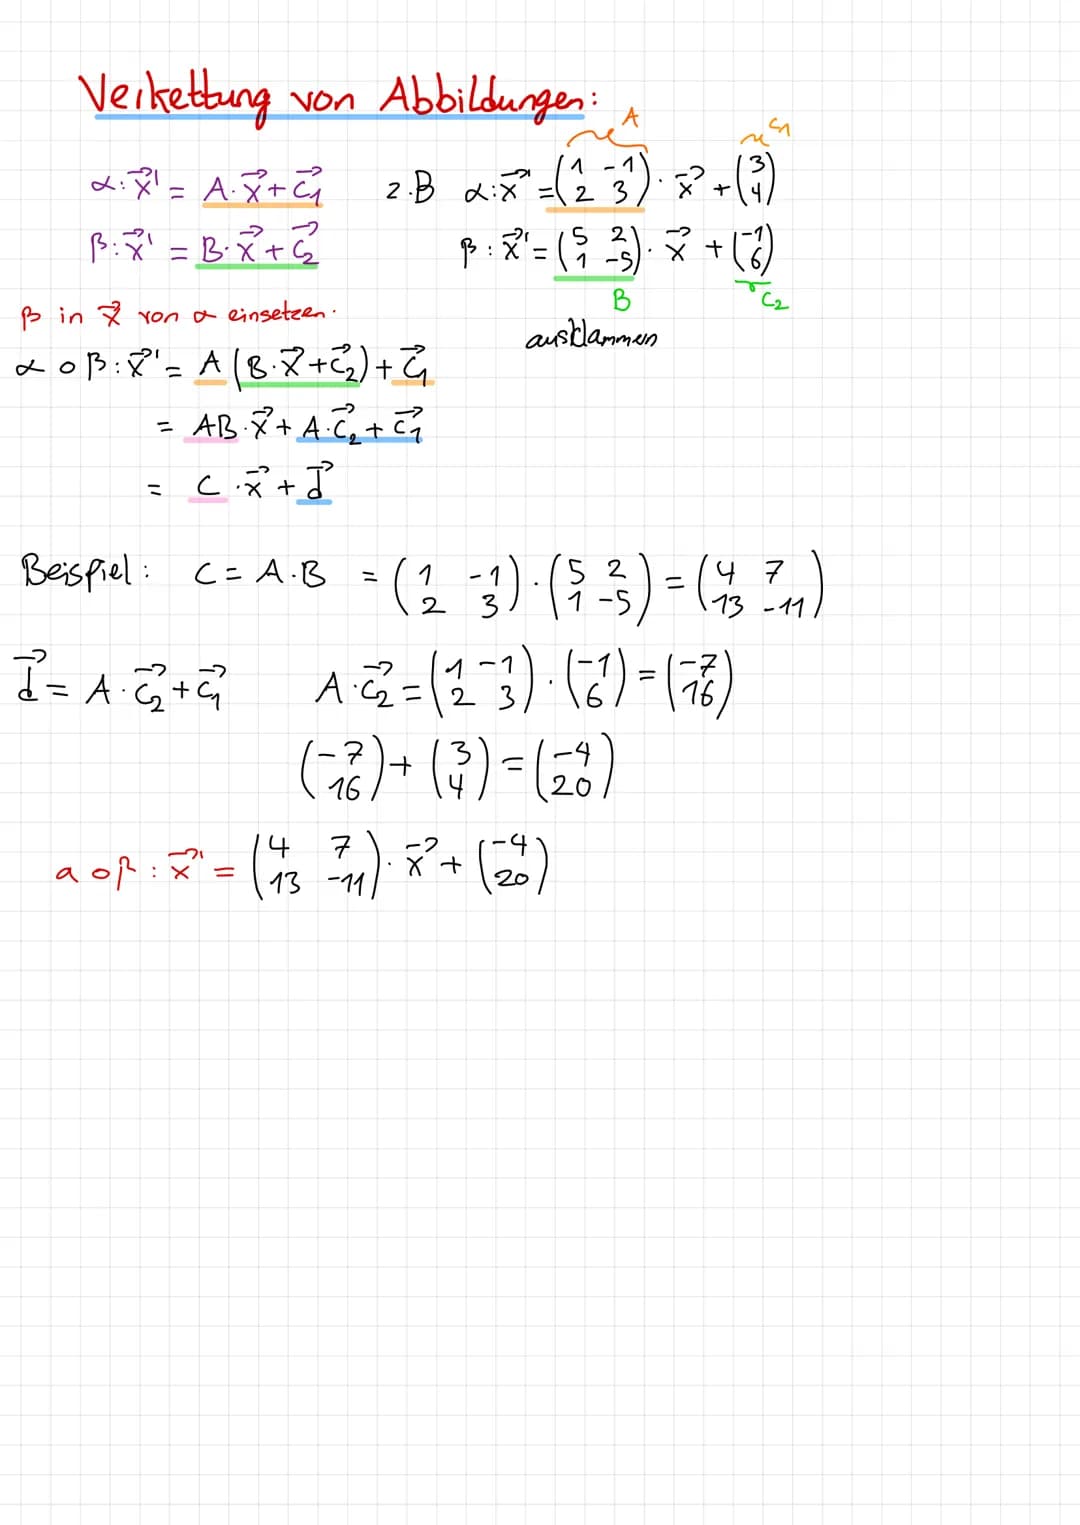 Verkettung von Abbildungen:
A c₁
α: x⃗' = A·x⃗ + c⃗₁ z.B α: x⃗' = (1 -1; 2 3) · x⃗ + (3; 4)
β: x⃗' = B·x⃗ + c⃗₂ β: x⃗' = (5 2; 1 -5) · x⃗ + (-1; 6)
B c₂
β in x⃗ von α einsetzen.
ausklammen
α ∘ β: x⃗' = A (B·x⃗ + c⃗₂) + c⃗₁
= AB·x⃗ + A·c⃗₂ + c⃗₁
= C·x⃗ + d⃗
Beispiel: C = A·B = (1 -1; 2 3) · (5 2; 1 -5) = (4 7; 13 -11)
d⃗ = A·c⃗₂ + c⃗₁ A·c⃗₂ = (1 -1; 2 3) · (-1; 6) = (-7; 16)
(-7; 16) + (3; 4) = (-4; 20)
α ∘ β: x⃗' = (4 7; 13 -11) · x⃗ + (-4; 20)